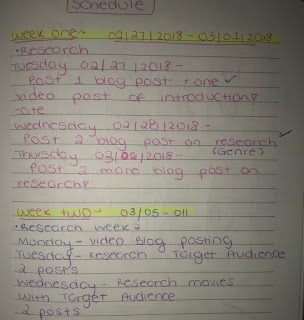 Schedule
Week one~ 02/27/2018 - 03/01/2018
• Research
Tuesday 02/27/2018 -
Post 1 blog post + one ✓
video post of introduction
-cite
Wednesday 02/28/2018 -
Post 2 blog post on research ✓
(Genre)
Thursday 03/ /2018 -
Post 2 more blog post on
research
Week two~ 03/05 - 011
• Research week 2
Monday - video Blog posting
Tuesday - Research Target Audience
2 posts
Wednesday - Research movies
with Target Audience
2 posts